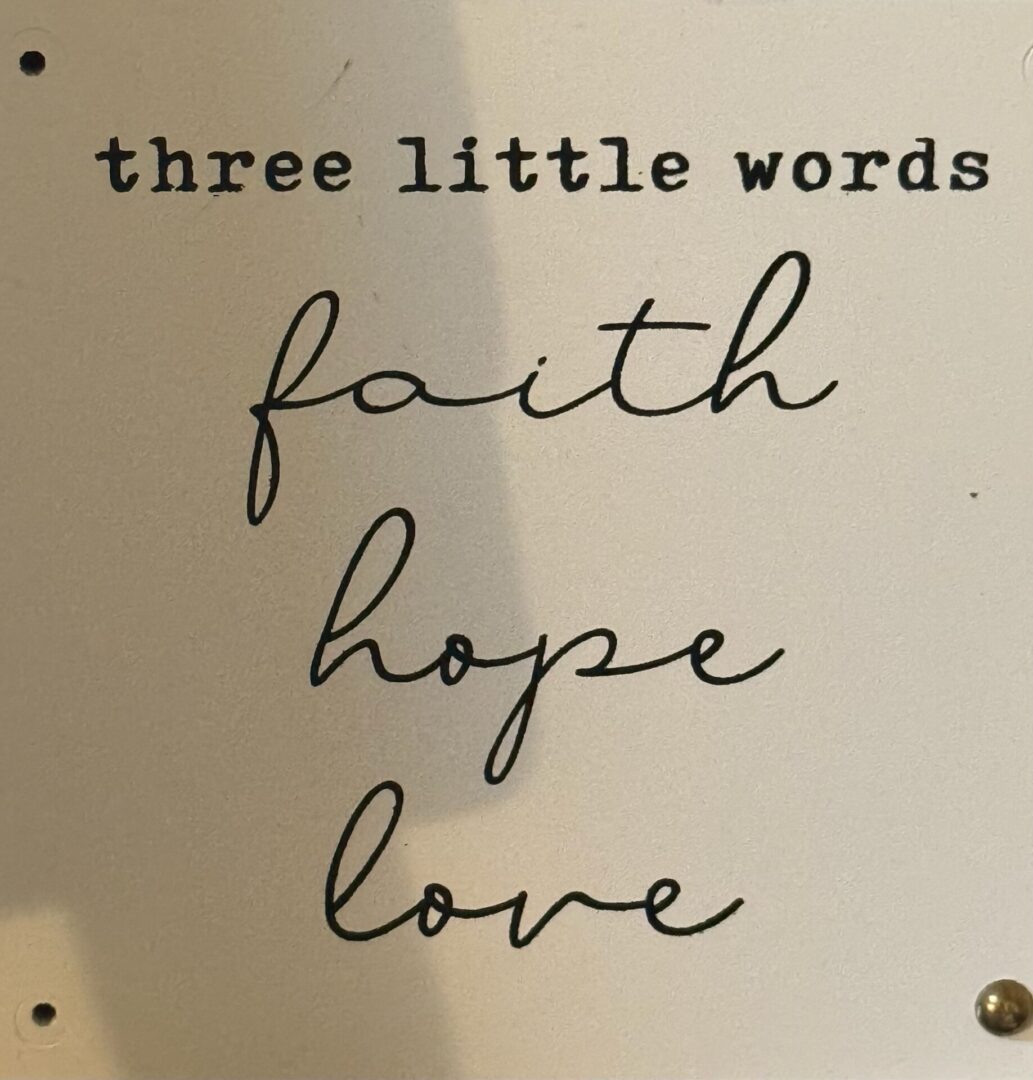 three little words
faith
hope
love